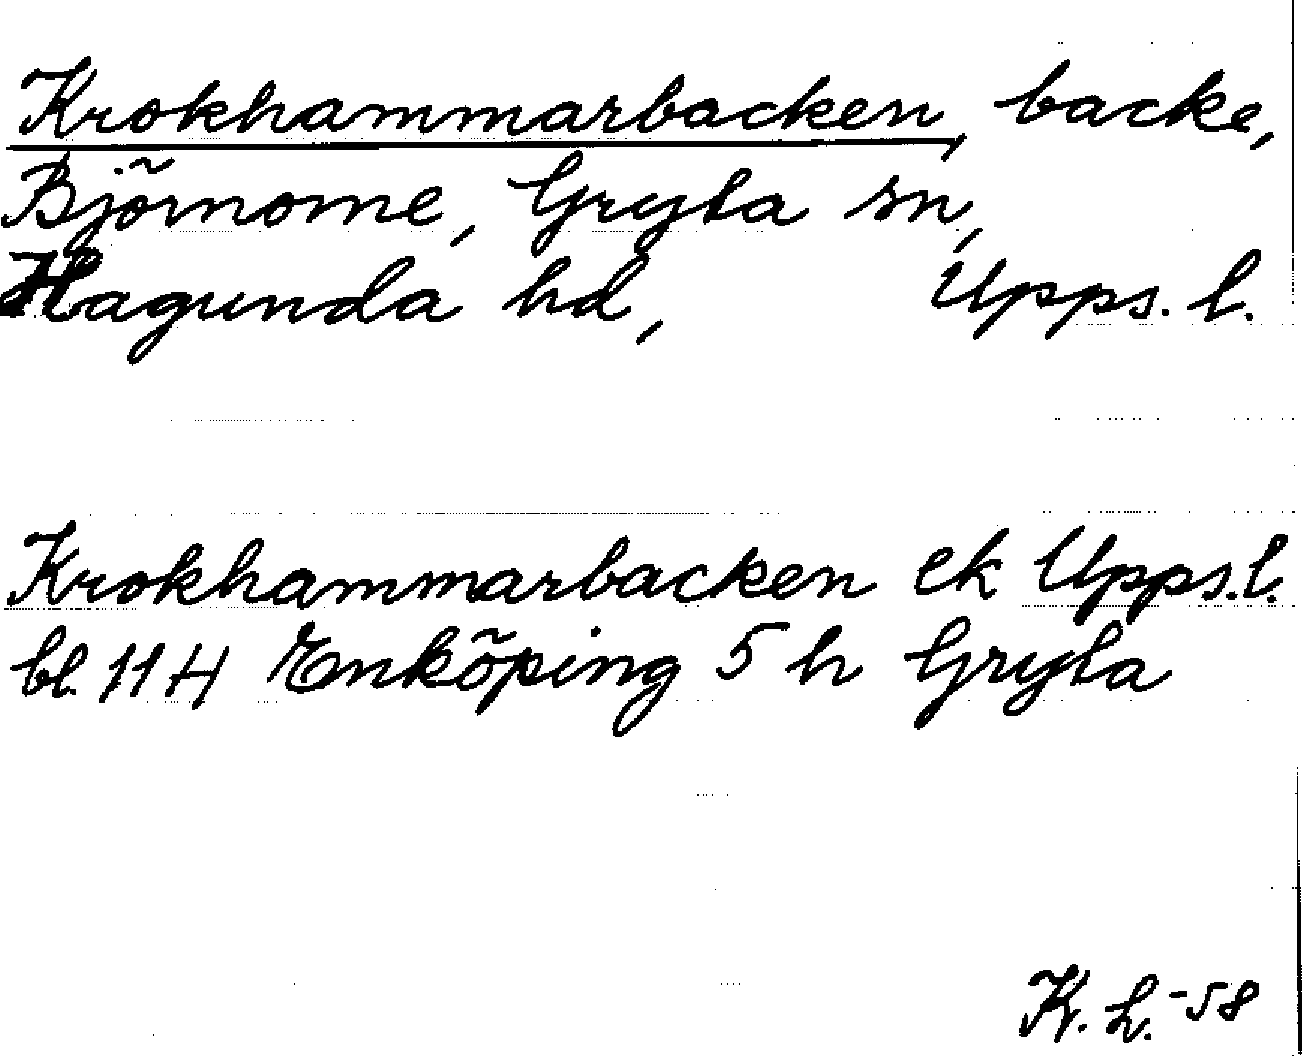 Krokhammarbacken, backe,
Björnome, Gryta sn,
Hagunda hd, Upps. l.
Krokhammarbacken ek Upps.l.
bl. 11 H Enköping 5 h Gryta
K. L. -58